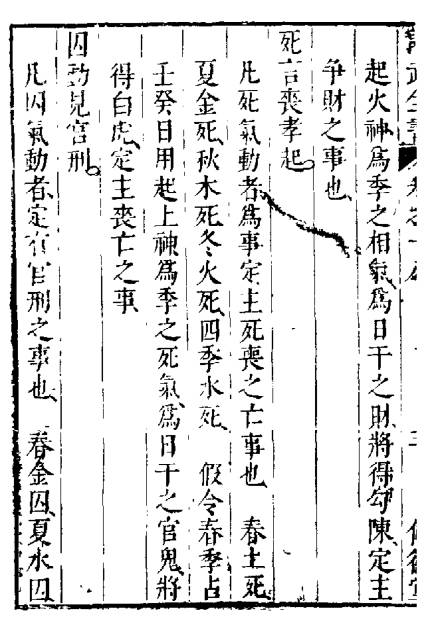 起火神為季之相氣為日干之財將得勾陳定主
爭財之事也
死言喪孝起
凡死氣動者為事定主死喪之亡事也　春土死
夏金死秋木死冬火死四季水死　假令春季占
壬癸日用起上神為季之死氣為日干之官鬼將
得白虎定主喪亡之事
囚動見官刑
凡囚氣動者定有官刑之事也　春金囚夏水囚